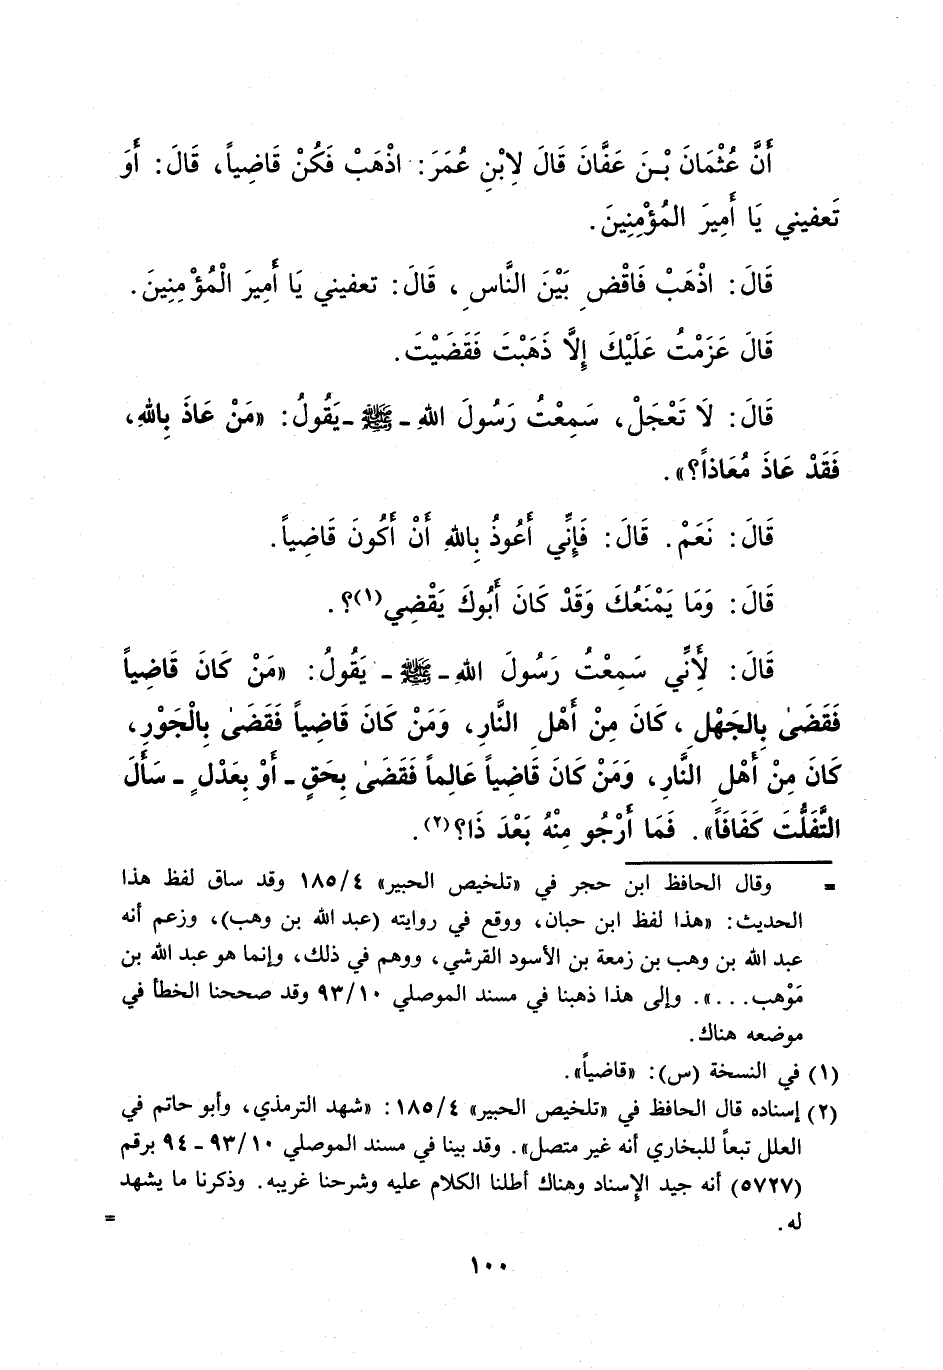 أَنَّ عُثْمَانَ بْـنَ عَفَّانَ قَالَ لِابْنِ عُمَرَ: اذْهَبْ فَكُنْ قَاضِياً، قَالَ: أَوَ
تَعفيني يَا أَمِيرَ المُؤْمِنِينَ.
قَالَ: اذْهَبْ فَاقْضِ بَيْنَ النَّاسِ، قَالَ: تعفيني يَا أَمِيرَ الْمُؤْمِنِينَ.
قَالَ عَزَمْتُ عَلَيْكَ إِلَّا ذَهَبْتَ فَقَضَيْتَ.
قَالَ: لَا تَعْجَلْ، سَمِعْتُ رَسُولَ اللهِ ـ ﷺ ـ يَقُولُ: «مَنْ عَاذَ بِاللهِ،
فَقَدْ عَاذَ مُعَاذاً؟».
قَالَ: نَعَمْ. قَالَ: فَإِنِّي أَعُوذُ بِاللهِ أَنْ أَكُونَ قَاضِياً.
قَالَ: وَمَا يَمْنَعُكَ وَقَدْ كَانَ أَبُوكَ يَقْضِي(١)؟.
قَالَ: لَأَنِّي سَمِعْتُ رَسُولَ اللهِ ـ ﷺ ـ يَقُولُ: «مَنْ كَانَ قَاضِياً
فَقَضَىٰ بِالجَهْلِ، كَانَ مِنْ أَهْلِ النَّارِ، وَمَنْ كَانَ قَاضِياً فَقَضَىٰ بِالْجَوْرِ،
كَانَ مِنْ أَهْلِ النَّارِ، وَمَنْ كَانَ قَاضِياً عَالِماً فَقَضَىٰ بِحَقٍ ـ أَوْ بِعَدْلٍ ـ سَأَلَ
التَّفَلُّتَ كَفَافَاً». فَمَا أَرْجُو مِنْهُ بَعْدَ ذَا؟(٢).
= وقال الحافظ ابن حجر في «تلخيص الحبير» ١٨٥/٤ وقد ساق لفظ هذا
الحديث: «هذا لفظ ابن حبان، ووقع في روايته (عبد الله بن وهب)، وزعم أنه
عبد الله بن وهب بن زمعة بن الأسود القرشي، ووهم في ذلك، وإنما هو عبد الله بن
مَوْهب...». وإلى هذا ذهبنا في مسند الموصلي ٩٣/١٠ وقد صححنا الخطأ في
موضعه هناك.
(١) في النسخة (س): «قاضياً».
(٢) إسناده قال الحافظ في «تلخيص الحبير» ١٨٥/٤: «شهد الترمذي، وأبو حاتم في
العلل تبعاً للبخاري أنه غير متصل». وقد بينا في مسند الموصلي ٩٣/١٠ ـ ٩٤ برقم
(٥٧٢٧) أنه جيد الإسناد وهناك أطلنا الكلام عليه وشرحنا غريبه. وذكرنا ما يشهد
له. =
١٠٠